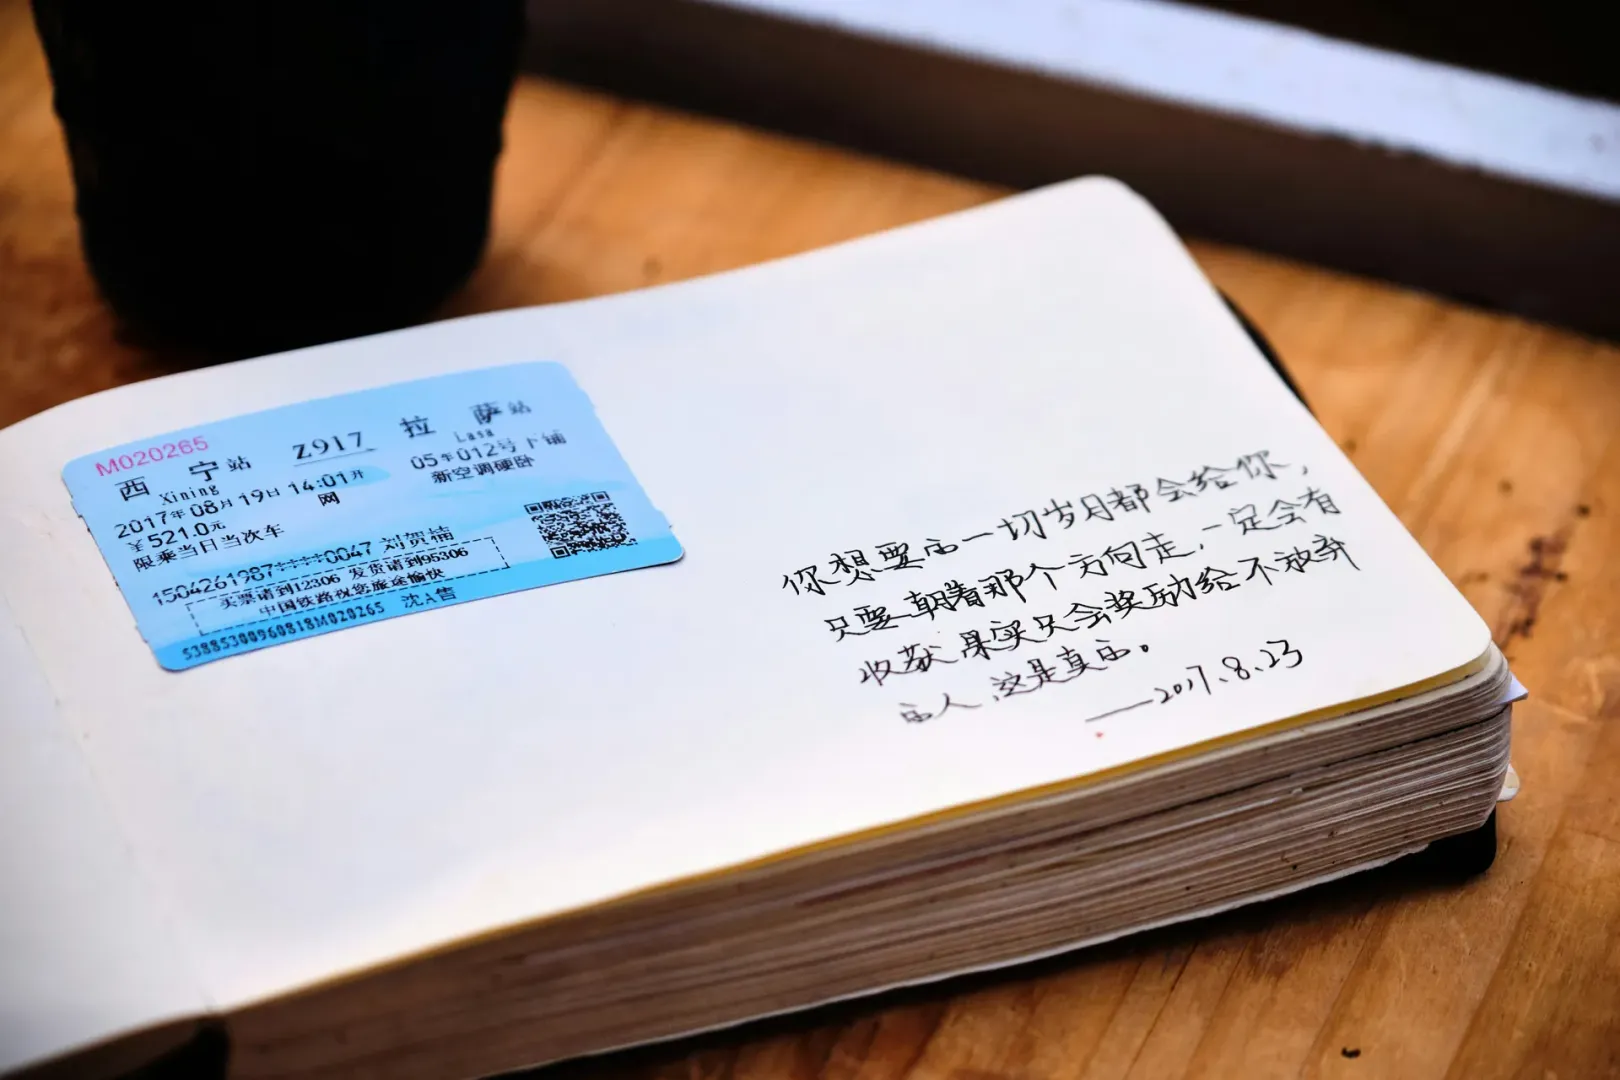 M020265
西 宁站 Z917 拉 萨站
Xining Lasa
2017年08月19日 14:01开 05车012号下铺
¥521.0元 网 新空调硬卧
限乘当日当次车
1504261987****0047 刘贺楠
买票请到12306 发货请到95306
中国铁路祝您旅途愉快
53885300960818M020265 沈A售
你想要的一切岁月都会给你，
只要朝着那个方向走，一定会有
收获果实只会奖励给不放弃
的人，这是真的。
——2017.8.23